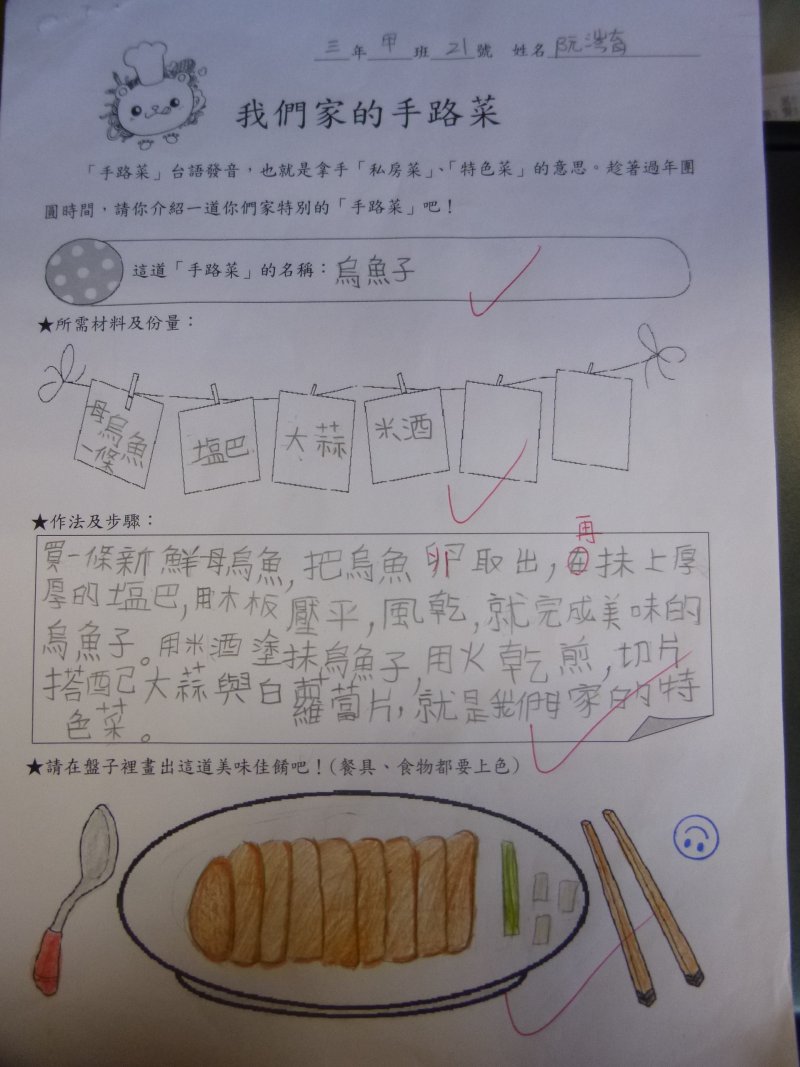 三年甲班21號 姓名阮浩育
我們家的手路菜
「手路菜」台語發音，也就是拿手「私房菜」、「特色菜」的意思。趁著過年團
圓時間，請你介紹一道你們家特別的「手路菜」吧！
這道「手路菜」的名稱：烏魚子
★所需材料及份量：
母烏魚一條
塩巴
大蒜
米酒
★作法及步驟：
再
買一條新鮮母烏魚,把烏魚卵取出,在抹上厚
厚的塩巴,用木板壓平,風乾,就完成美味的
烏魚子。用米酒塗抹烏魚子,用火乾煎,切片
搭配大蒜與白蘿蔔片,就是我們家的特
色菜。
★請在盤子裡畫出這道美味佳餚吧！(餐具、食物都要上色)